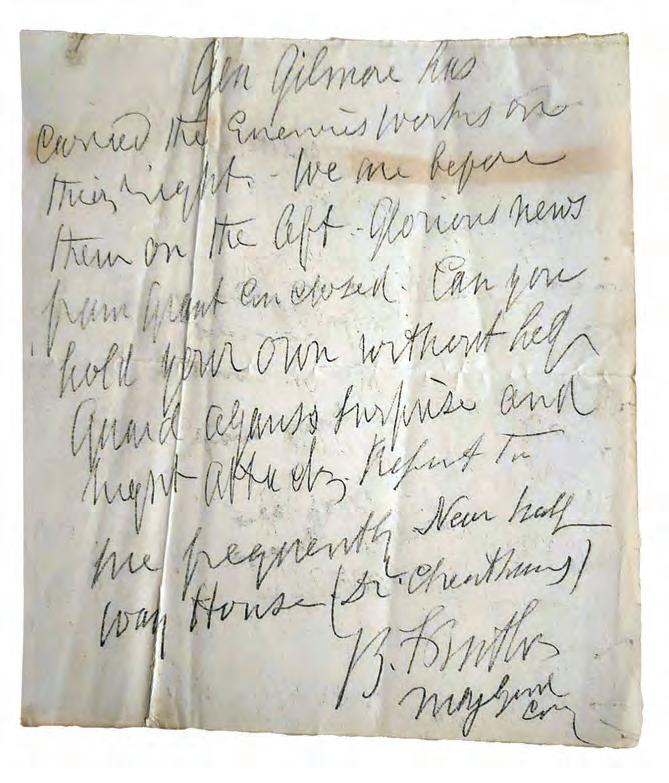 Gen Gilmore has
carried the Enemies works on
their right. - We are before
them on the left - Glorious news
from Grant enclosed. Can you
hold your own without help
Guard against surprise and
night attacks, Report to
me frequently Near half
way House (Dr. Cheathams)
B. F Butler
Maj Genl
Com